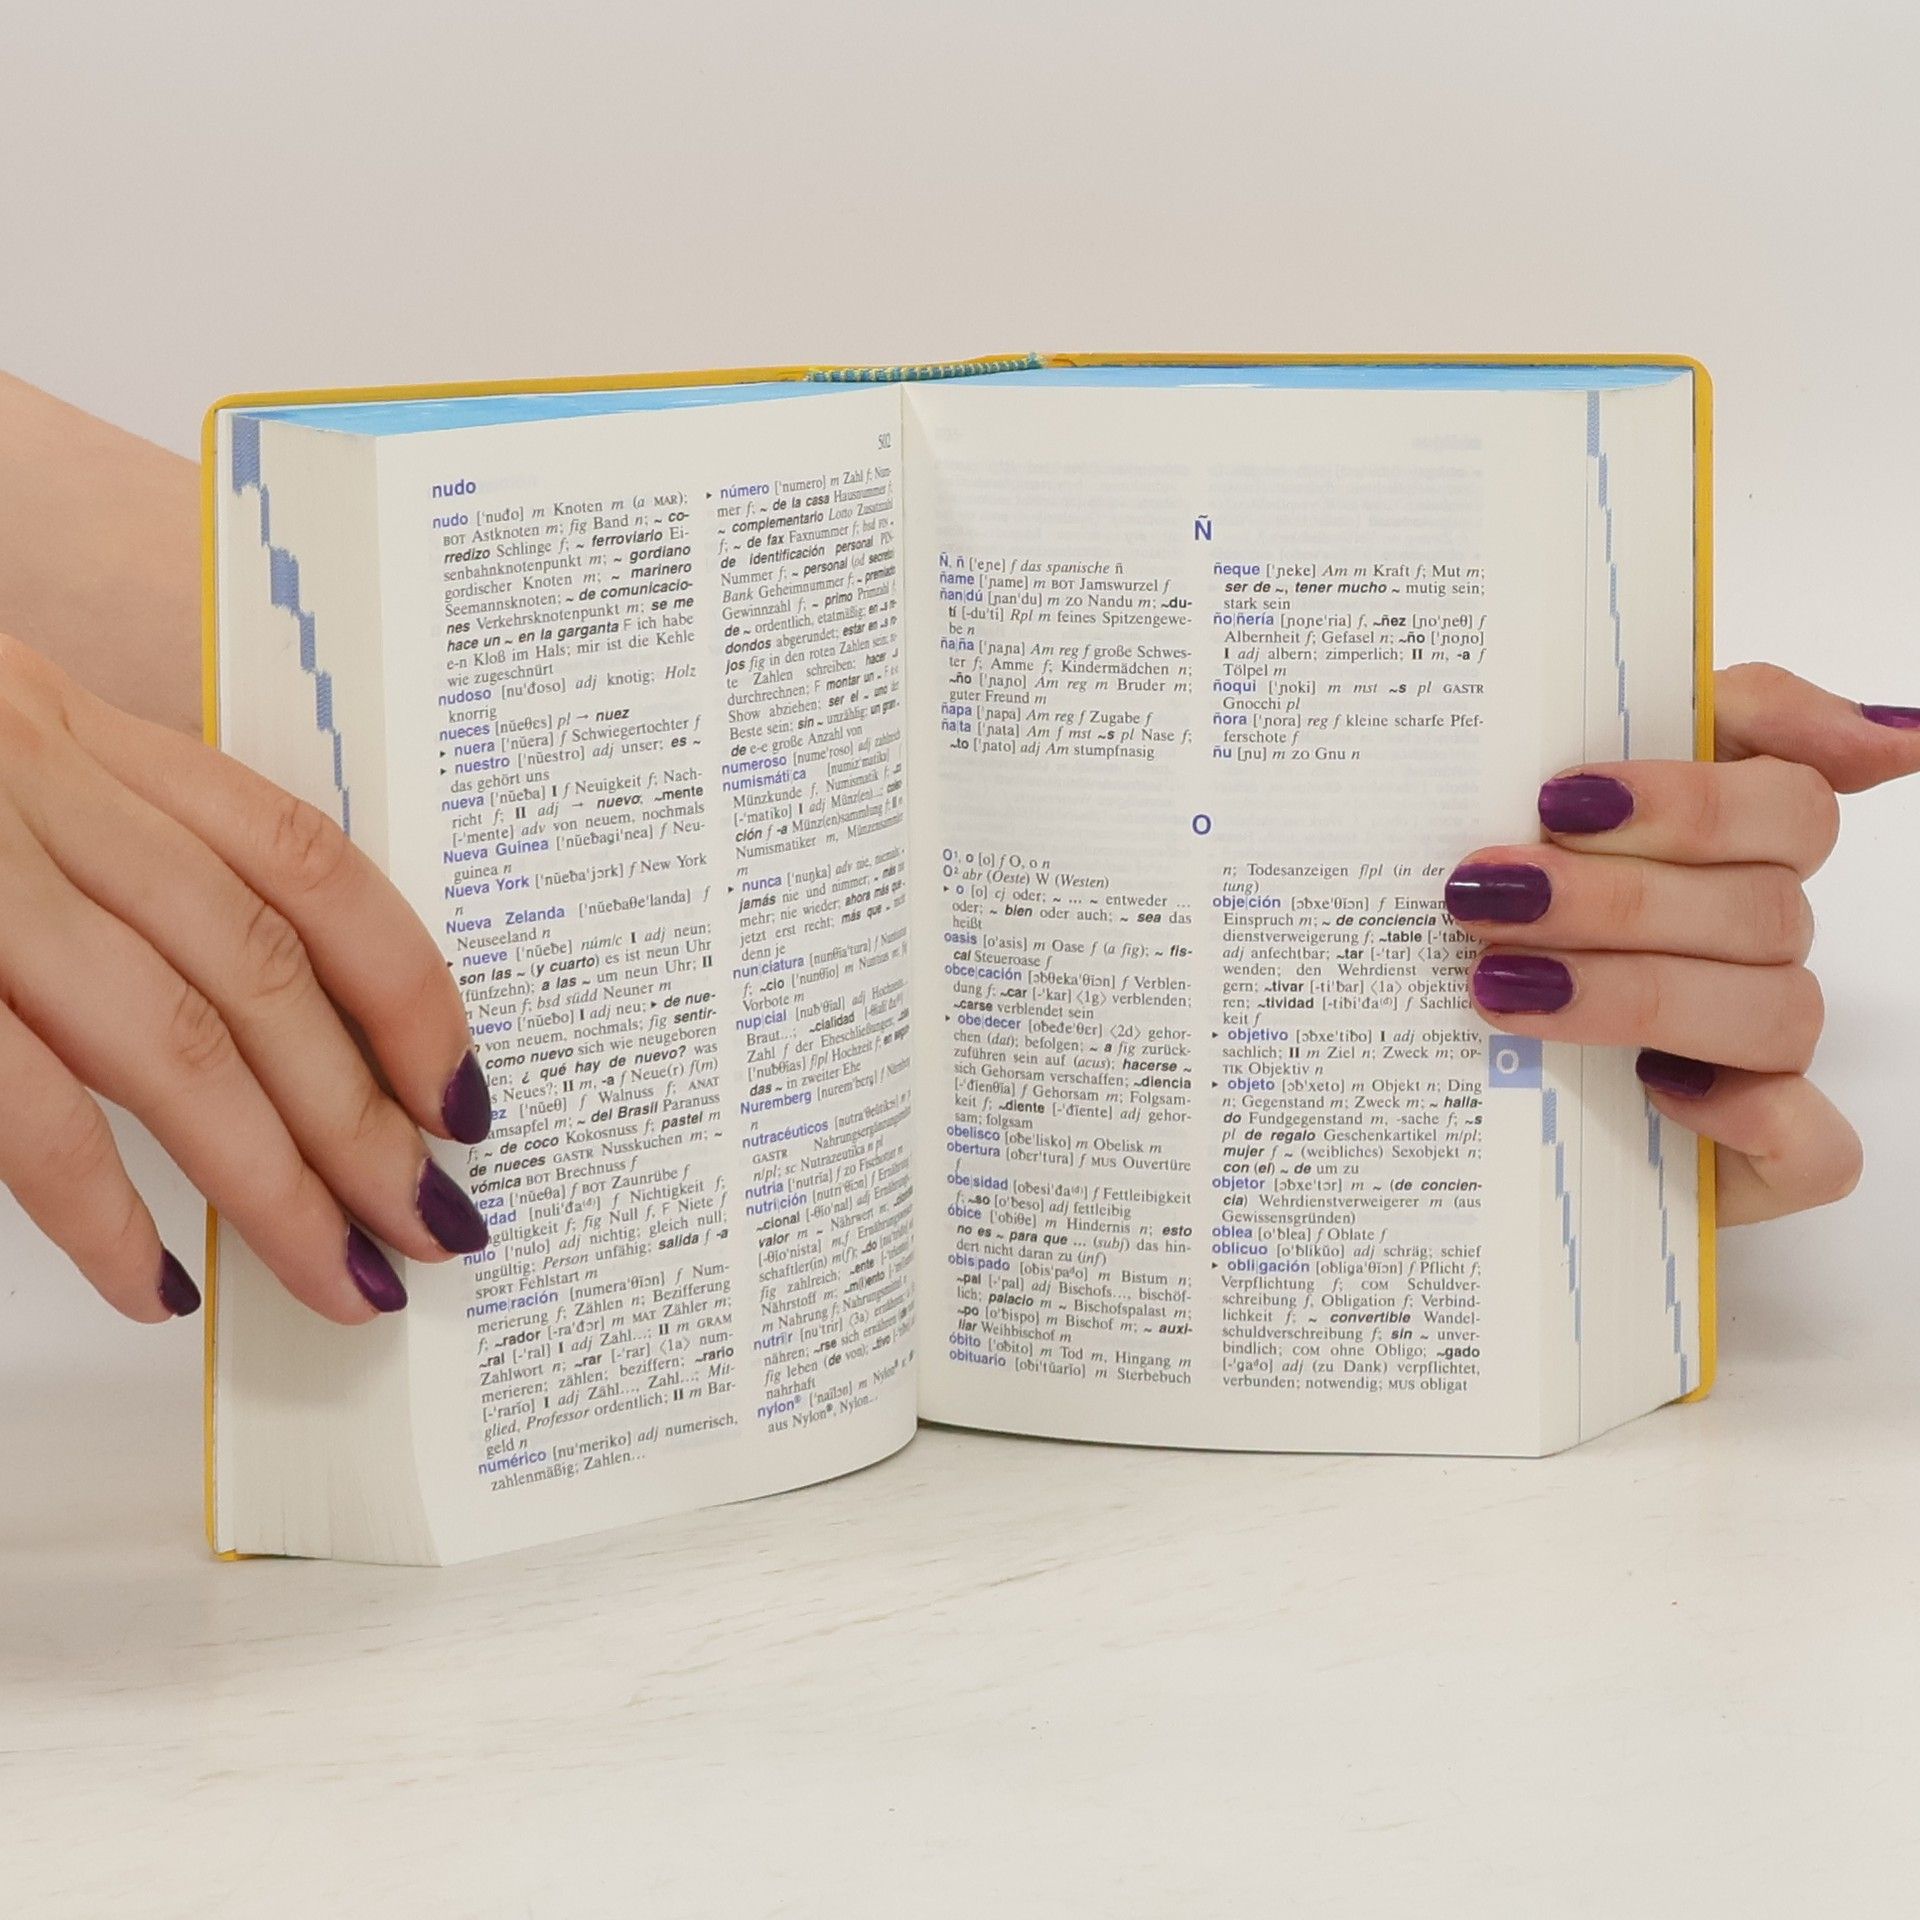 nudo
502
nudo ['nuđo] m Knoten m (a MAR);
BOT Astknoten m; fig Band n; ~ co-
rredizo Schlinge f; ~ ferroviario Ei-
senbahnknotenpunkt m; ~ gordiano
gordischer Knoten m; ~ marinero
Seemannsknoten; ~ de comunicacio-
nes Verkehrsknotenpunkt m; se me
hace un ~ en la garganta F ich habe
e-n Kloß im Hals; mir ist die Kehle
wie zugeschnürt
nudoso [nu'đoso] adj knotig; Holz
knorrig
nueces [nŭeθεs] pl → nuez
▸ nuera ['nŭera] f Schwiegertochter f
▸ nuestro ['nŭestro] adj unser; es ~
das gehört uns
nueva ['nŭeƀa] I f Neuigkeit f; Nach-
richt f; II adj → nuevo; ~mente
[-'mente] adv von neuem, nochmals
Nueva Guinea ['nŭeƀagi'nea] f Neu-
guinea n
Nueva York ['nŭeƀa'jɔrk] f New York
n
Nueva Zelanda ['nŭeƀaθe'landa] f
Neuseeland n
▸ nueve ['nŭeƀe] núm/c I adj neun;
son las ~ (y cuarto) es ist neun Uhr
(fünfzehn); a las ~ um neun Uhr; II
Neun f; bsd südd Neuner m
nuevo ['nŭeƀo] I adj neu; ▸ de nue-
von neuem, nochmals; fig sentir-
como nuevo sich wie neugeboren
¿ qué hay de nuevo? was
Neues?; II m, -a f Neue(r) f(m)
['nŭeθ] f Walnuss f; ANAT
m; ~ del Brasil Paranuss
f; ~ de coco Kokosnuss f; pastel m
de nueces GASTR Nusskuchen m; ~
vómica BOT Brechnuss f
['nŭeθa] f BOT Zaunrübe f
[nuli'đa⁽ᵈ⁾] f Nichtigkeit f;
f; fig Null f, F Niete f
nulo ['nulo] adj nichtig; gleich null;
ungültig; Person unfähig; salida f -a
SPORT Fehlstart m
nume|ración [numera'θĭɔn] f Num-
merierung f; Zählen n; Bezifferung
f; ~rador [-ra'đɔr] m MAT Zähler m;
~ral [-'ral] I adj Zahl...; II m GRAM
Zahlwort n; ~rar [-'rar] ⟨1a⟩ num-
merieren; zählen; beziffern; ~rario
[-'rarĭo] I adj Zähl..., Zahl...; Mit-
glied, Professor ordentlich; II m Bar-
geld n
numérico [nu'meriko] adj numerisch,
zahlenmäßig; Zahlen...
▸ número ['numero] m Zahl f; Num-
mer f; ~ de la casa Hausnummer f;
~ complementario Lotto Zusatzzahl
f; ~ de fax Faxnummer f; bsd FIN ~
de identificación personal PIN-
Nummer f; ~ personal (od secreto)
Bank Geheimnummer f; ~ premiado
Gewinnzahl f; ~ primo Primzahl f;
de ~ ordentlich, etatmäßig; en ~s re-
dondos abgerundet; estar en ~s ro-
jos fig in den roten Zahlen sein;
te Zahlen schreiben; hacer ~s
durchrechnen; F montar un ~
Show abziehen; ser el ~ uno der
Beste sein; sin ~ unzählig; un gran ~
de e-e große Anzahl von
numeroso [nume'roso] adj zahlreich
numismáti|ca [numiz'matika] f
Münzkunde f, Numismatik f; ~co
[-'matiko] I adj Münz(en)...; colec-
ción f -a Münz(en)sammlung f; II m
Numismatiker m, Münzensammler
m
▸ nunca ['nuŋka] adv nie, niemals;
jamás nie und nimmer; ~ más nie
mehr; nie wieder; ahora más que ~
jetzt erst recht; más que ~
denn je
nun|ciatura [nunθĭa'tura] f Nuntiatur
f; ~cio ['nunθĭo] m Nuntius m; fig
Vorbote m
nup|cial [nuƀ'θĭal] adj Hochzeits...,
Braut...; ~cialidad
Zahl f der Eheschließungen;
['nuƀθĭas] f/pl Hochzeit f; en segun-
das ~ in zweiter Ehe
Nuremberg [nurem'berg] f Nürnberg
n
nutracéuticos [nutra'θeŭtikɔs] m pl
GASTR Nahrungsergänzungsmittel
n/pl; sc Nutrazeutika n pl
nutria ['nutrĭa] f zo Fischotter m
nutri|ción [nutri'θĭɔn] f Ernährung f;
~cional [-θĭo'nal] adj Ernährungs...;
valor m ~ Nährwert m;
[-θĭo'nista] m,f Ernährungswissen-
schaftler(in) m(f); ~do
fig zahlreich; ~ente
Nährstoff m; ~m(i)ento
m Nahrung f; Nahrungsmittel n
nutri|r [nu'trir] ⟨3a⟩ ernähren;
nähren; ~rse sich ernähren
fig leben (de von); ~tivo
nahrhaft
nylon® ['naĭlɔn] m Nylon® n; de ~
aus Nylon®, Nylon...
Ñ
Ñ, ñ ['eɲe] f das spanische ñ
ñame ['ɲame] m BOT Jamswurzel f
ñan|dú [ɲan'du] m zo Nandu m; ~du-
tí [-du'ti] Rpl m feines Spitzengewe-
be n
ña|ña ['ɲaɲa] Am reg f große Schwes-
ter f; Amme f; Kindermädchen n;
~ño ['ɲaɲo] Am reg m Bruder m;
guter Freund m
ñapa ['ɲapa] Am reg f Zugabe f
ña|ta ['ɲata] Am f mst ~s pl Nase f;
~to ['ɲato] adj Am stumpfnasig
ñeque ['ɲeke] Am m Kraft f; Mut m;
ser de ~, tener mucho ~ mutig sein;
stark sein
ño|ñería [ɲoɲe'ria] f, ~ñez [ɲo'ɲeθ] f
Albernheit f; Gefasel n; ~ño ['ɲoɲo]
I adj albern; zimperlich; II m, -a f
Tölpel m
ñoqui ['ɲoki] m mst ~s pl GASTR
Gnocchi pl
ñora ['ɲora] reg f kleine scharfe Pfef-
ferschote f
ñu [ɲu] m zo Gnu n
O
O¹, o [o] f O, o n
O² abr (Oeste) W (Westen)
▸ o [o] cj oder; ~ ... ~ entweder ...
oder; ~ bien oder auch; ~ sea das
heißt
oasis [o'asis] m Oase f (a fig); ~ fis-
cal Steueroase f
obce|cación [ɔƀθeka'θĭɔn] f Verblen-
dung f; ~car [-'kar] ⟨1g⟩ verblenden;
~carse verblendet sein
▸ obe|decer [oƀeđe'θεr] ⟨2d⟩ gehor-
chen (dat); befolgen; ~ a fig zurück-
zuführen sein auf (acus); hacerse ~
sich Gehorsam verschaffen; ~diencia
[-'đĭenθĭa] f Gehorsam m; Folgsam-
keit f; ~diente [-'đĭente] adj gehor-
sam; folgsam
obelisco [oƀe'lisko] m Obelisk m
obertura [oƀεr'tura] f MUS Ouvertüre
f
obe|sidad [oƀesi'đa⁽ᵈ⁾] f Fettleibigkeit
f; ~so [o'ƀeso] adj fettleibig
óbice ['oƀiθe] m Hindernis n; esto
no es ~ para que ... (subj) das hin-
dert nicht daran zu (inf)
obis|pado [oƀis'paᵈo] m Bistum n;
~pal [-'pal] adj Bischofs..., bischöf-
lich; palacio m ~ Bischofspalast m;
~po [o'ƀispo] m Bischof m; ~ auxi-
liar Weihbischof m
óbito ['oƀito] m Tod m, Hingang m
obituario [oƀi'tŭarĭo] m Sterbebuch
n; Todesanzeigen f/pl (in der
tung)
obje|ción [ɔƀxe'θĭɔn] f
Einspruch m; ~ de conciencia
dienstverweigerung f; ~table [-'taƀle]
adj anfechtbar; ~tar [-'tar] ⟨1a⟩ ein
wenden; den Wehrdienst
gern; ~tivar [-ti'ƀar] ⟨1a⟩
ren; ~tividad [-tiƀi'đa⁽ᵈ⁾] f
keit f
▸ objetivo [ɔƀxe'tiƀo] I adj objektiv,
sachlich; II m Ziel n; Zweck m; OP-
TIK Objektiv n
▸ objeto [ɔƀ'xeto] m Objekt n; Ding
n; Gegenstand m; Zweck m; ~ halla-
do Fundgegenstand m, -sache f; ~s
pl de regalo Geschenkartikel m/pl;
mujer f ~ (weibliches) Sexobjekt n;
con (el) ~ de um zu
objetor [ɔƀxe'tɔr] m ~ (de concien-
cia) Wehrdienstverweigerer m (aus
Gewissensgründen)
oblea [o'ƀlea] f Oblate f
oblicuo [o'ƀlikŭo] adj schräg; schief
▸ obli|gación [oƀliga'θĭɔn] f Pflicht f;
Verpflichtung f; COM Schuldver-
schreibung f, Obligation f; Verbind-
lichkeit f; ~ convertible Wandel-
schuldverschreibung f; sin ~ unver-
bindlich; COM ohne Obligo; ~gado
[-'gaᵈo] adj (zu Dank) verpflichtet,
verbunden; notwendig; MUS obligat
O